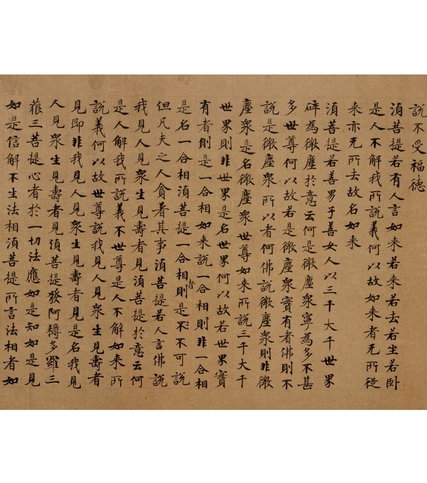 說不受福德
湏菩提若有人言如来若来若去若坐若卧
是人不解我所說義何以故如来者无所従
来亦无所去故名如来
湏菩提若善男子善女人以三千大千世界
碎為微塵於意云何是微塵衆寧為多不甚
多世尊何以故若是微塵衆實有者佛則不
說是微塵衆所以者何佛說微塵衆則非微
塵衆是名微塵衆世尊如来所說三千大千
世界則非世界是名世界何以故若世界實
有者則是一合相如来說一合相則非一合相
是名一合相湏菩提一合相者則是不可說
但凡夫之人貪著其事湏菩提若人言佛說
我見人見衆生見壽者見湏菩提於意云何
是人解我所說義不世尊是人不解如来所
說義何以故世尊說我見人見衆生見壽者
見即非我見人見衆生見壽者見是名我見
人見衆生見壽者見湏菩提發阿耨多羅三
藐三菩提心者於一切法應如是知如是見
如是信解不生法相湏菩提所言法相者如